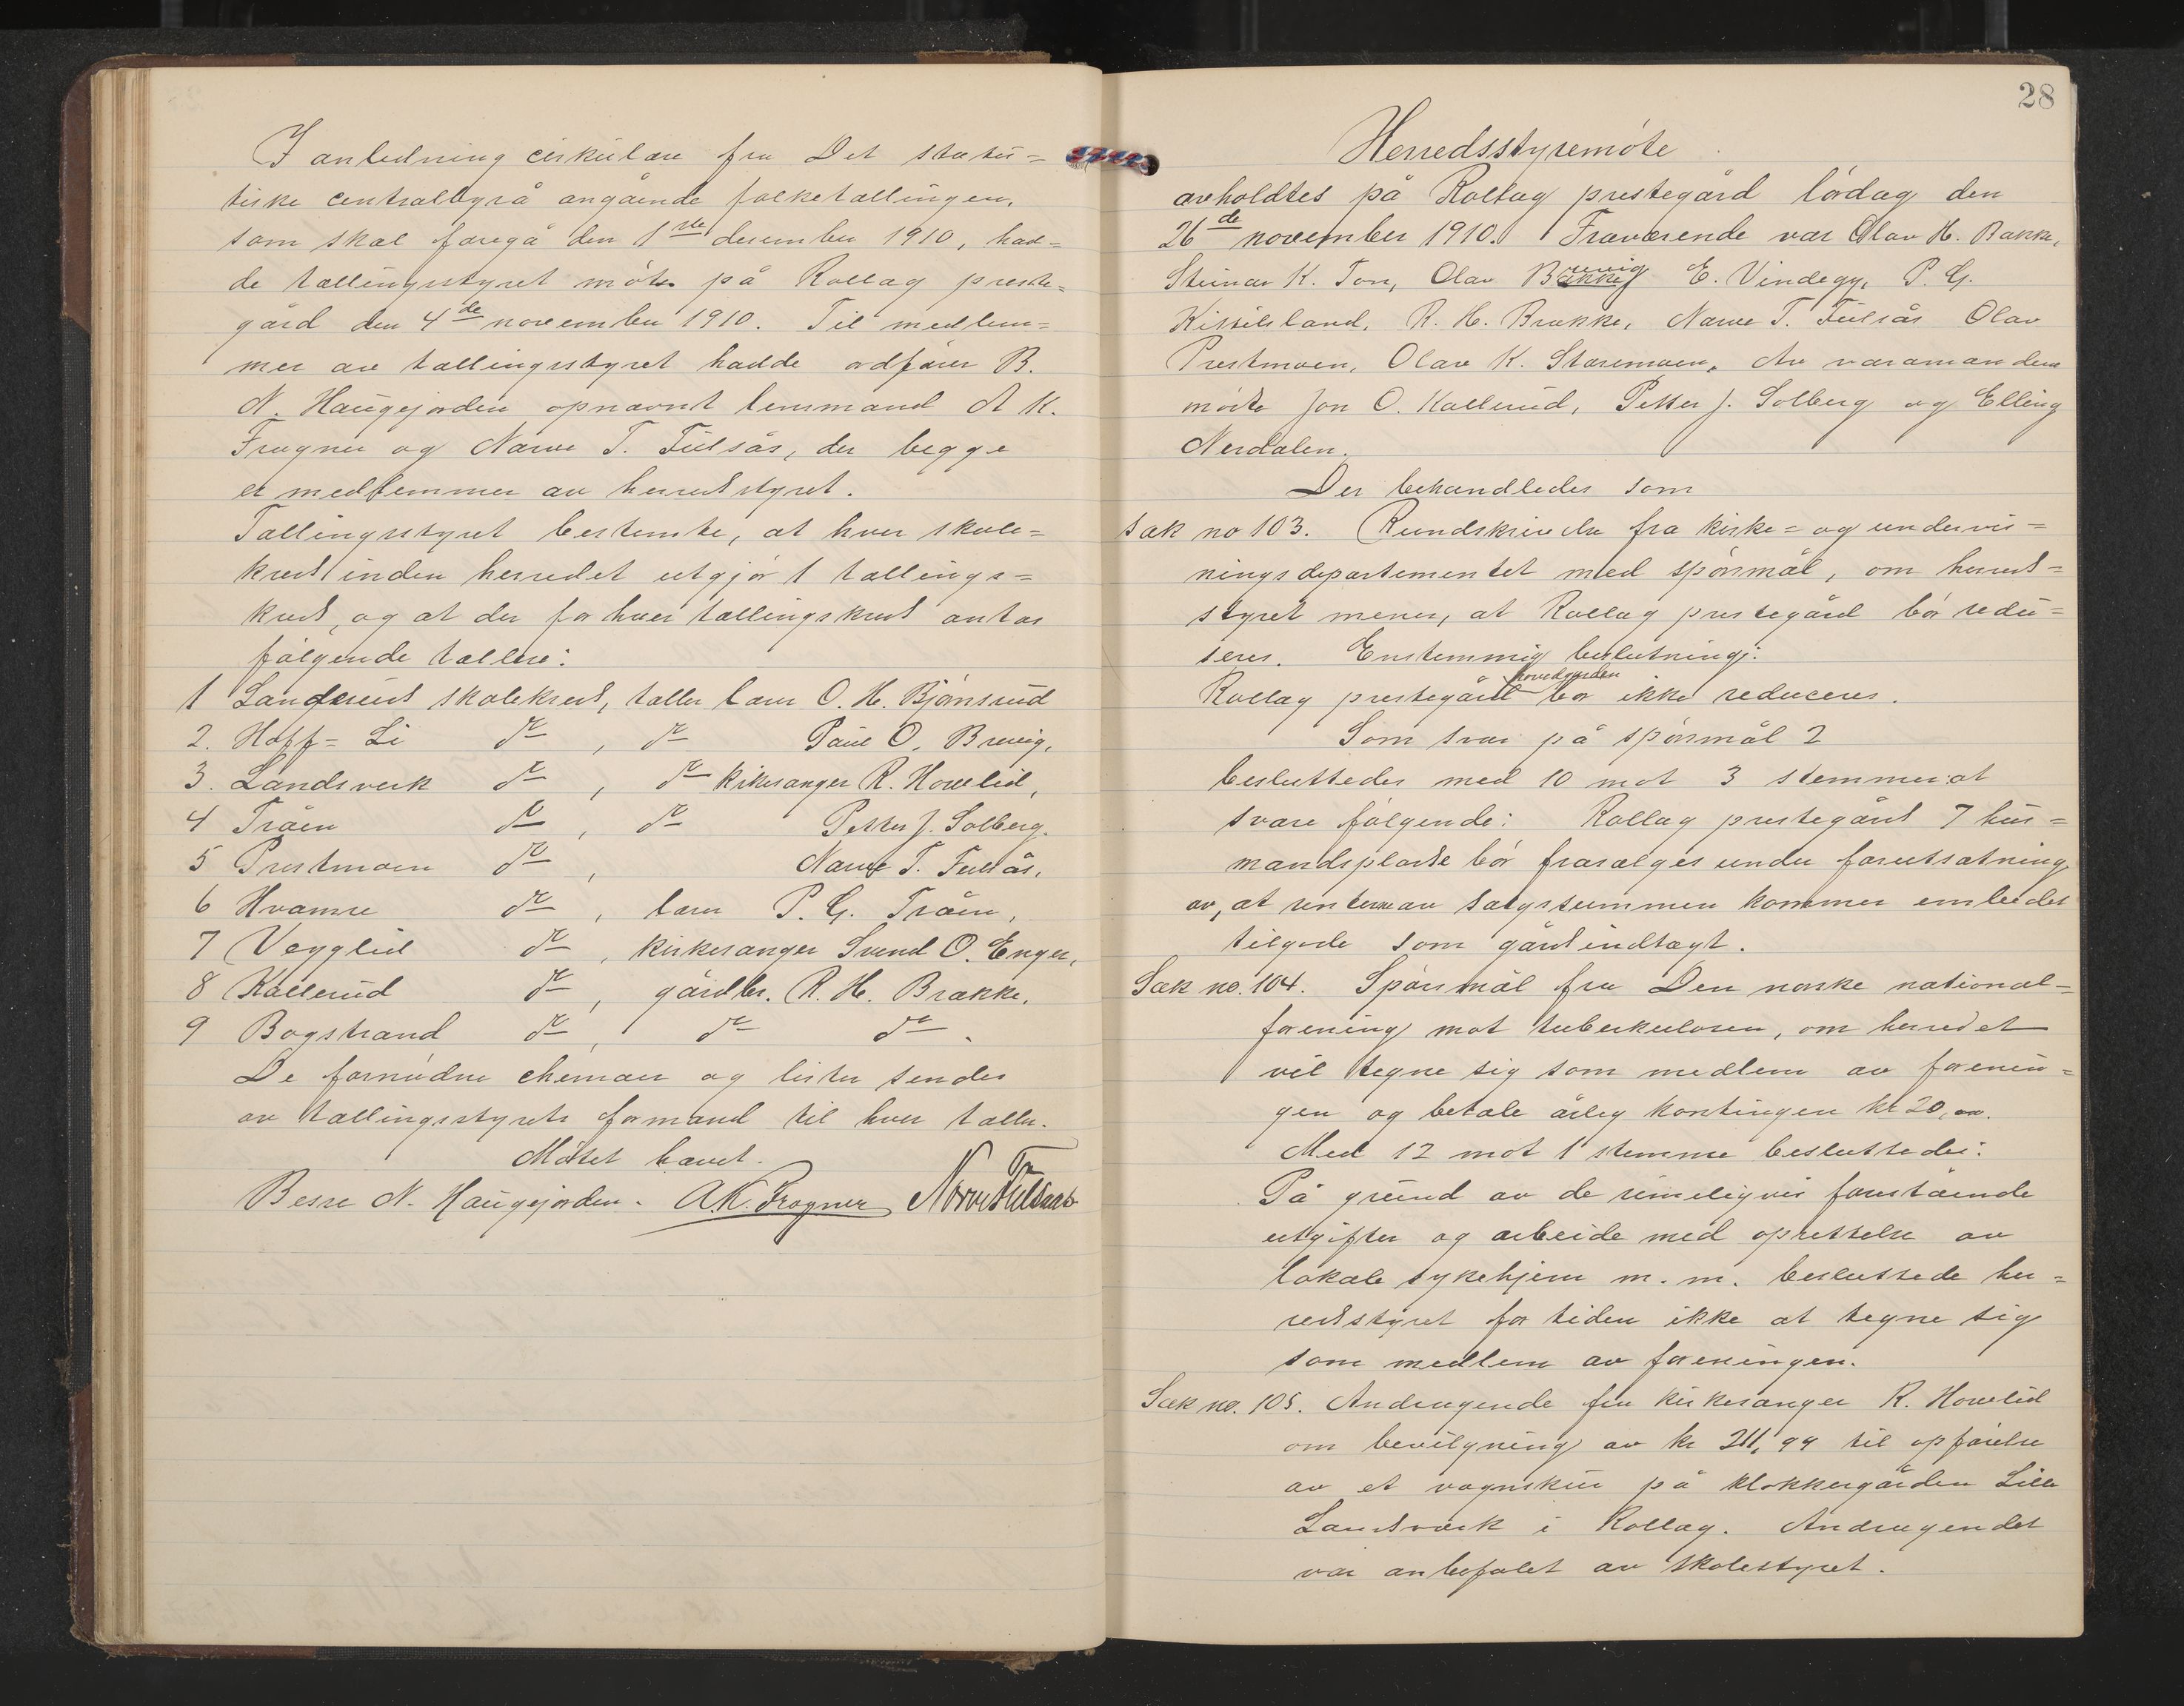 I anledning cirkulære fra Det statis=
tiske centralbyrå angående folketællingen,
som skal foregå den 1ste desember 1910, had=
de tællingsstyret møte på Rollag preste=
gård den 4de november 1910. Til medlem=
mer av tællingsstyret hadde ordfører B.
N. Haugejorden opnævnt lensmand A K.
Frogner og Narve T. Fulsås, der begge
er medlemmer av herredsstyret.
Tællingsstyret bestemte, at hver skole=
kreds inden herredet utgjør 1 tællings=
kreds, og at der for hver tællingskreds antas
følgende tællere:
1 Landerud skolekreds, tæller lærer O. H. Bjørnsrud
2. Hoff=Li do , do Paul O. Brevig,
3. Landsverk do , do kirkesanger R. Hovelid,
4 Tråen do , do Petter J. Solberg.
5 Prestmoen do , Narve T. Fulsås,
6 Hvamre do , lærer P. G. Tråen,
7 Veggli d do , kirkesanger Svend O. Enger,
8 Kallerud do , gårdbr. R. H. Brække,
9 Bogstrand do , do do .
De fornødne skemaer og lister sendes
av tællingsstyrets formand til hver tæller.
Møtet hævet.
Besse N. Haugejorden. A.K. Frogner Narve T Fulsaas
28
Herredsstyremøte
avholdtes på Rollag prestegård lørdag den
26de november 1910. Fraværende var Olav H. Bakke,
Steinar K. Ton, Olav Brevig E. Vindegg, P. G.
Kittilsland, R. H. Brække, Narve T. Fulsås Olav
Prestmoen, Olav K. Staremoen. Av varamændene
møtte Jon O. Kallerud, Petter J. Solberg og Elling
Nerdalen.
Der behandledes som
Sak no 103. Rundskrivelse fra kirke= og undervis=
ningsdepartementet med spørsmål, om herreds=
styret mener, at Rollag prestegård bør redu=
seres. Enstemmig beslutning:
hovedgården
Rollag prestegård bør ikke reduceres.
Som svar på spørsmål 2
besluttedes med 10 mot 3 stemmer at
svare følgende: Rollag prestegårds 7 hus=
mandsplasse bør frasælges under forutsætning
av, at renterne av salgssummen kommer embedet
tilgode som gårdsindtægt.
Sak no. 104. Spørsmål fra Den norske national=
forening mot tuberkulosen, om herredet
vil tegne sig som medlem av forenin=
gen og betale årlig kontingen kr 20,00.
Med 12 mot 1 stemme besluttedes:
På grund av de rimeligvis forestående
utgifter og arbeide med oprettelse av
lokale sykehjem m. m. besluttede her=
redsstyret for tiden ikke at tegne sig
som medlem av foreningen.
Sak no. 105. Andragende fra kirkesanger R. Hovelid
om bevilgning av kr 211,99 til opførelse
av et vognskur på klokkergården Lille
Landsværk i Rollag. Andragendet
var anbefalet av skolestyret.